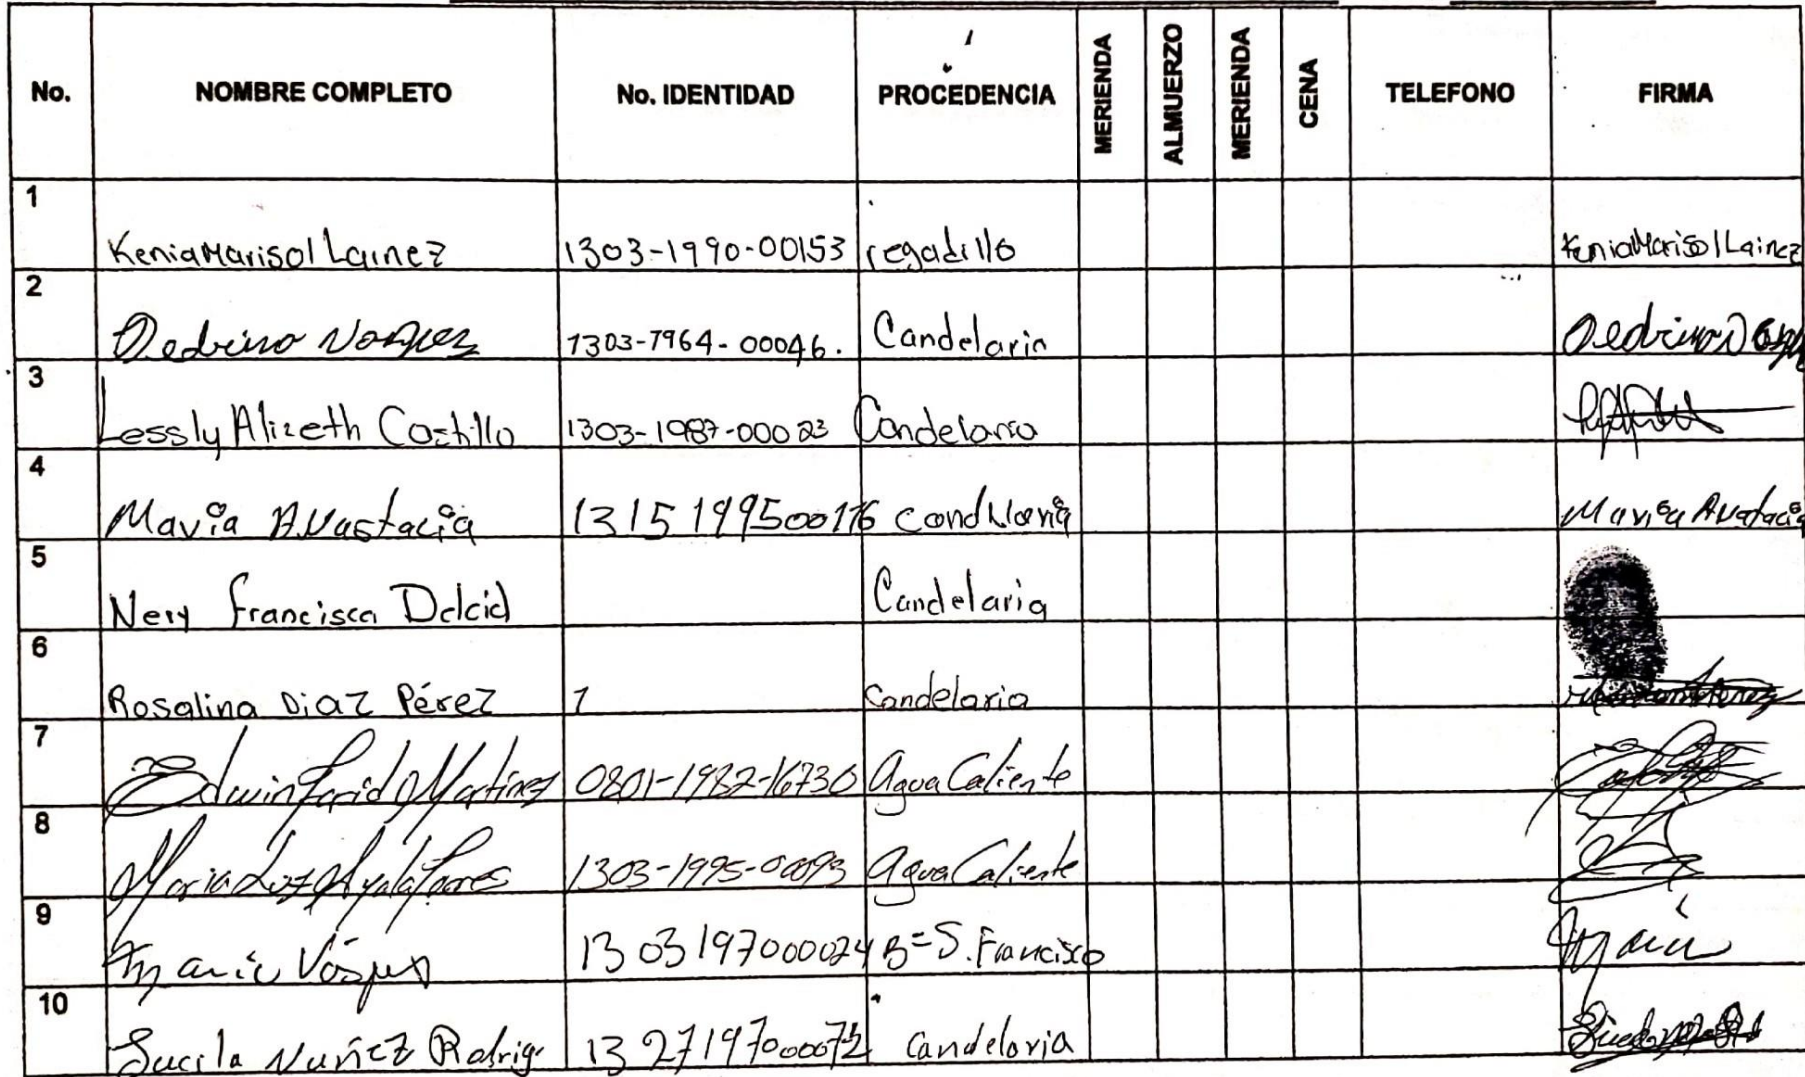 No. NOMBRE COMPLETO No. IDENTIDAD PROCEDENCIA MERIENDA ALMUERZO MERIENDA CENA TELEFONO FIRMA
1 Kenia Marisol Lainez 1303-1990-00153 regadillo Kenia Marisol Lainez
2 Pedrino Vasquez 1303-1964-00046. Candelaria Pedrino
3 Lessly Alizeth Castillo 1303-1987-00023 Candelaria
4 Mavia Anastacia 1315 1995 00116 Mavia Anastacia
5 Nery Francisca Delcid Candelaria
6 Rosalina Diaz Pérez 1 candelaria
7 Edwin Farid Martinez 0801-1982-16730 Agua Caliente
8 Maria Luz Ayala 1303-1995-00093 Agua Caliente
9 Maria Vásquez 1303197000024 B=S. Francisco Maria
10 Lucila Nuñez Rodrig. candelaria